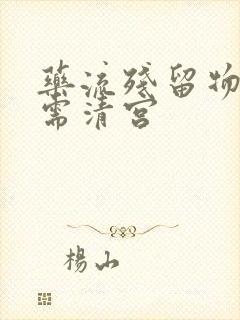 藥流殘留物
需清宮
楊山